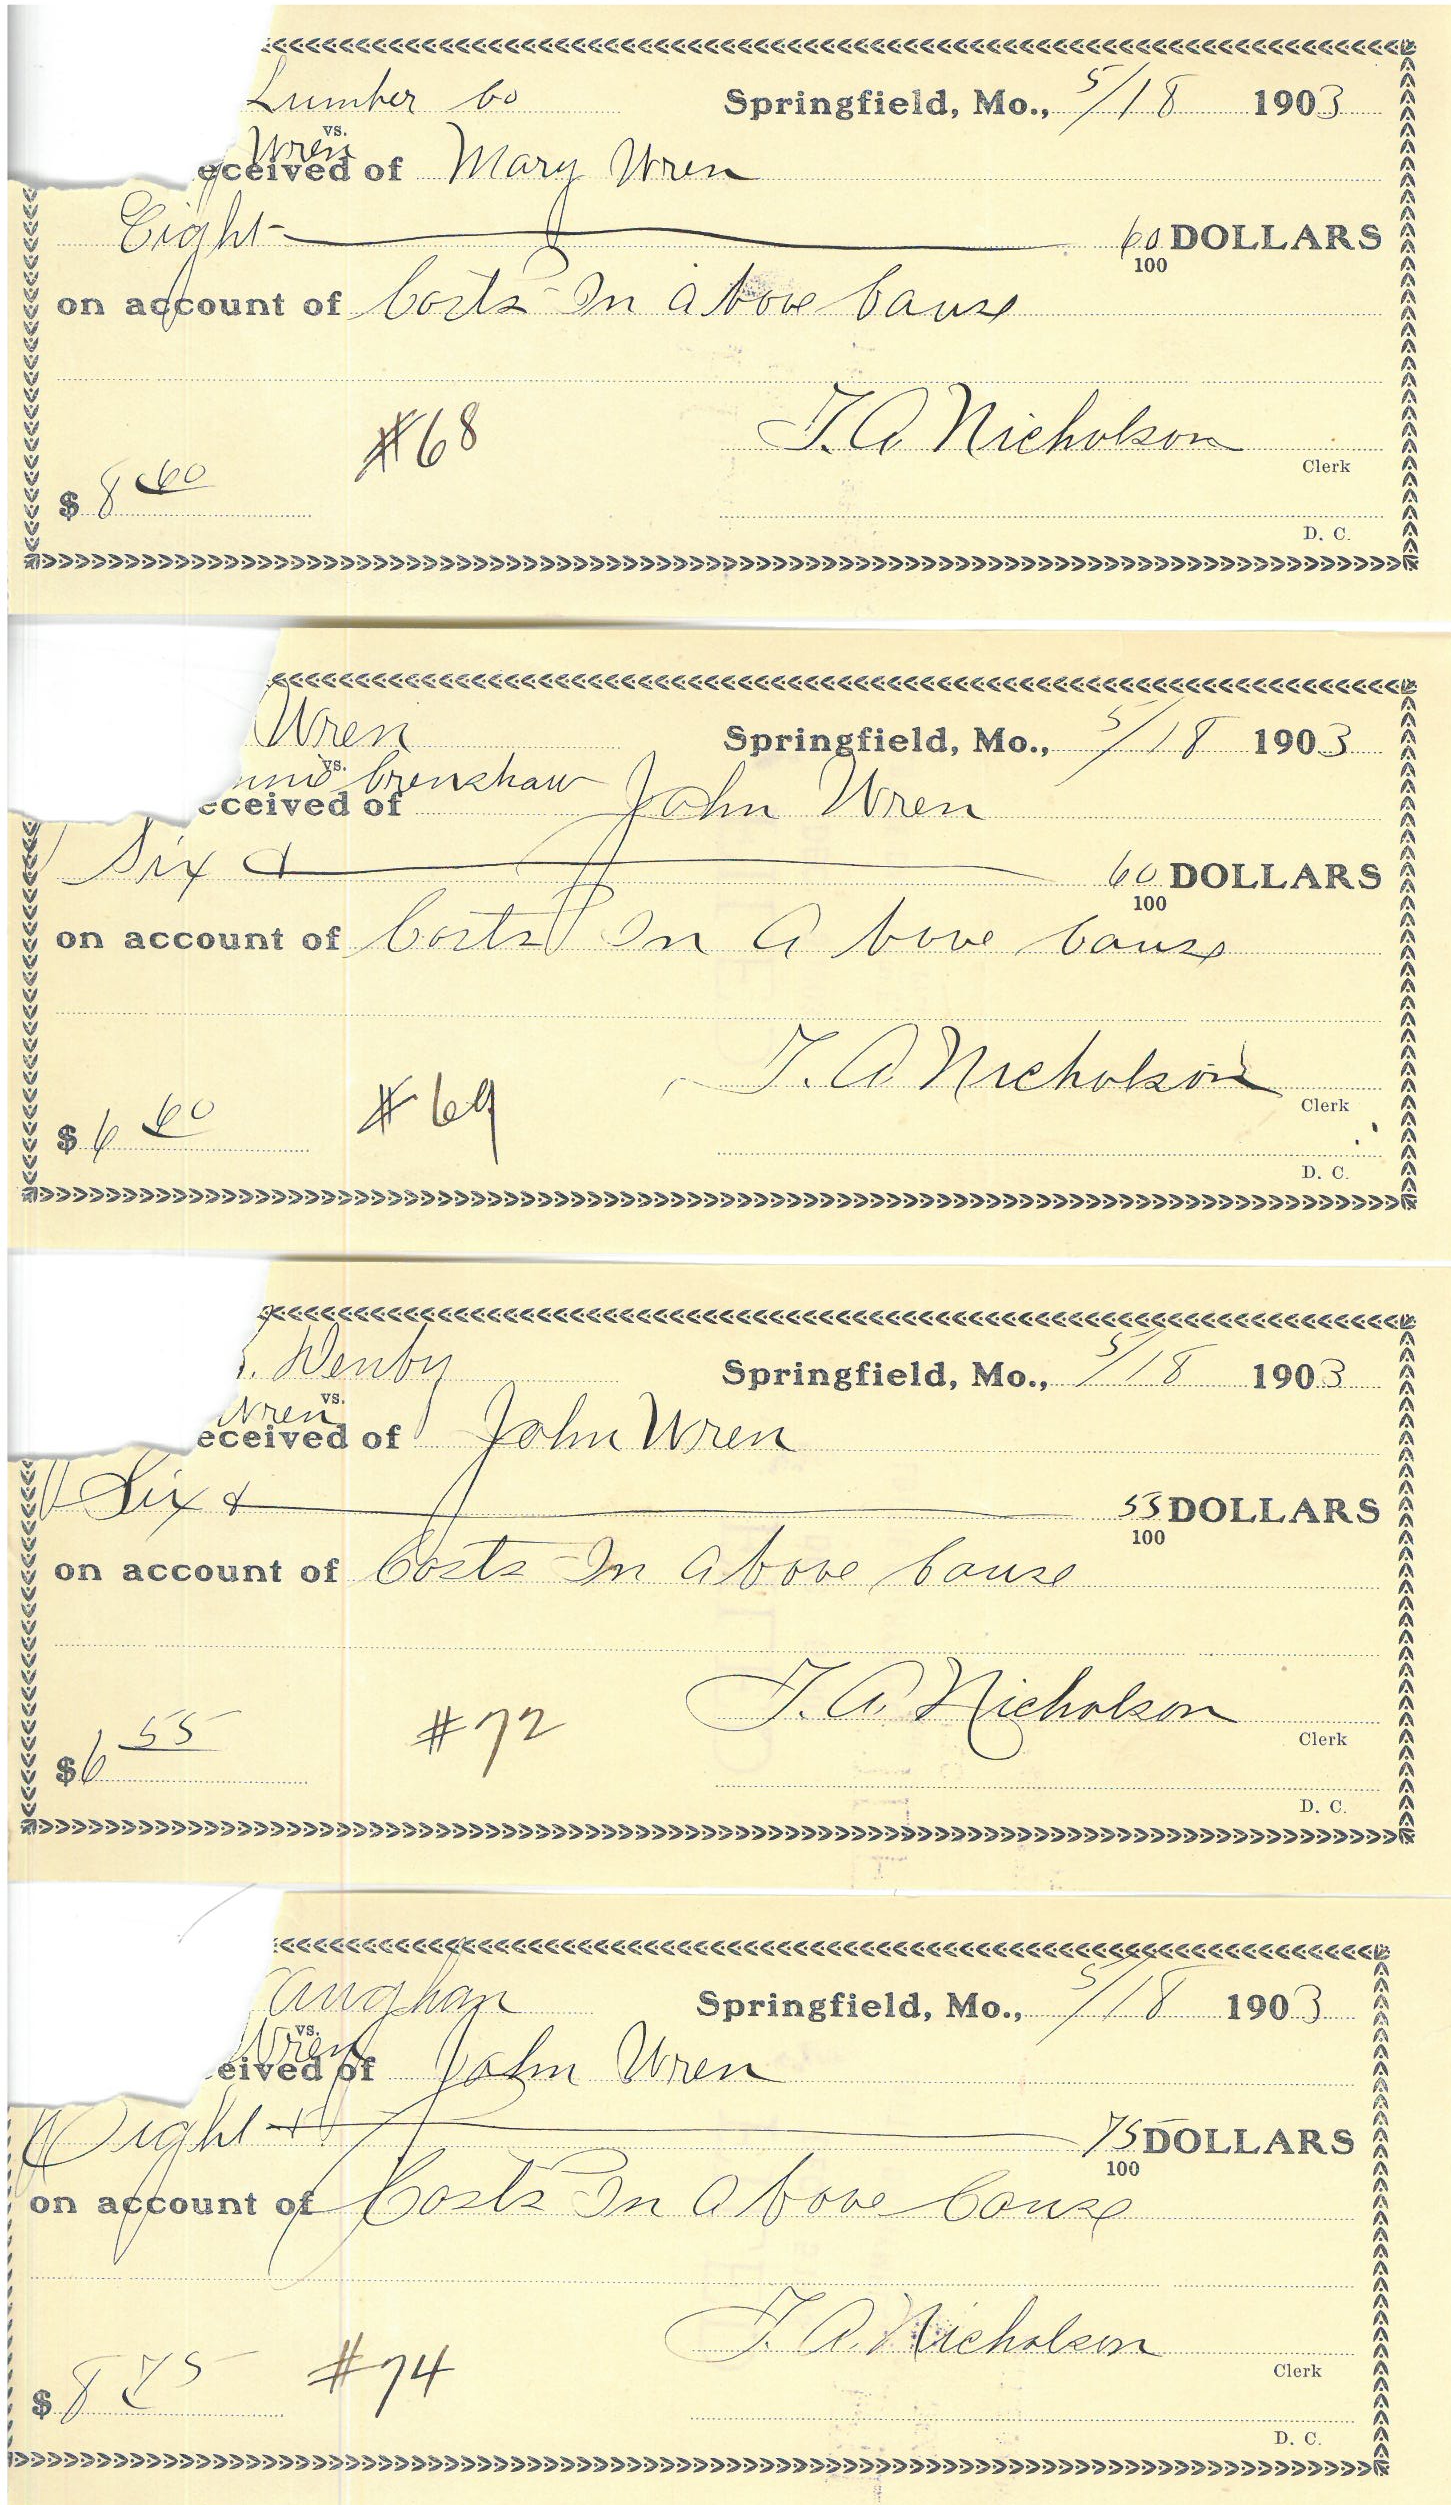 Lumber Co Springfield, Mo., 5/18 1903
vs.
Wren
eceived of Mary Wren
Eight 60 DOLLARS
100
on account of Costs In above Cause
#68 T. A. Nicholson
Clerk
$ 8 60
D. C.
Wren Springfield, Mo., 5/18 1903
vs.
Crenshaw
eceived of John Wren
Six & 60 DOLLARS
100
on account of Costs In Above Cause
T. A. Nicholson
Clerk
$ 6 60 #69
D. C.
Denby Springfield, Mo., 5/18 1903
vs.
Wren
eceived of John Wren
Six & 55 DOLLARS
100
on account of Costs In Above Cause
T. A. Nicholson
Clerk
$ 6 55 #72
D. C.
aughan Springfield, Mo., 5/18 1903
vs.
Wren
eived of John Wren
Eight & 75 DOLLARS
100
on account of Costs In Above Cause
T. A. Nicholson
Clerk
$ 8 75 #74
D. C.